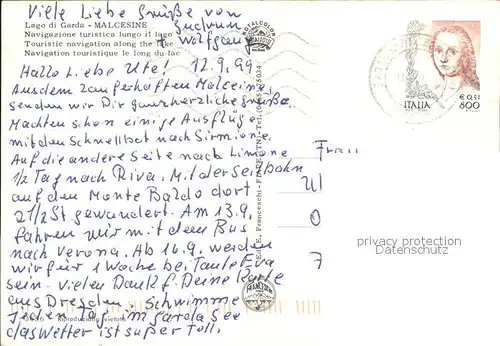 Viele Liebe Grüße von
Gudrun
+ Wolfgang
Lago di Garda - MALCESINE
Navigazione turistica lungo il lago
Touristic navigation along the lake
Navigation touristique le long du lac
Hallo Liebe Ute! 12.9.99
Aus dem zauferhaften Malcesine
senden wir Dir ganz herzliche Grüße.
Machten schon einige Ausflüge
mit dem Schnellboot nach Sirmione.
Auf die andere Seite nach Limone
1/2 Tag nach Riva. Mit der Seilbahn
auf den Monte Baldo dort
2 1/2 St gewandert. Am 13.9.
fahren wir mit dem Bus
nach Verona. Ab 16.9. werden
wir für 1 Woche bei Tante Eva
sein. Vielen Dank f. Deine Karte
aus Dresden. Schwimme
jeden Tag im Garda See
das Wetter ist super toll.
Riproduzione vietata
Ediz. E. Franceschi
ITALIA
€ 0,41
800
Frau
Ul
O
7
privacy protection
Datenschutz